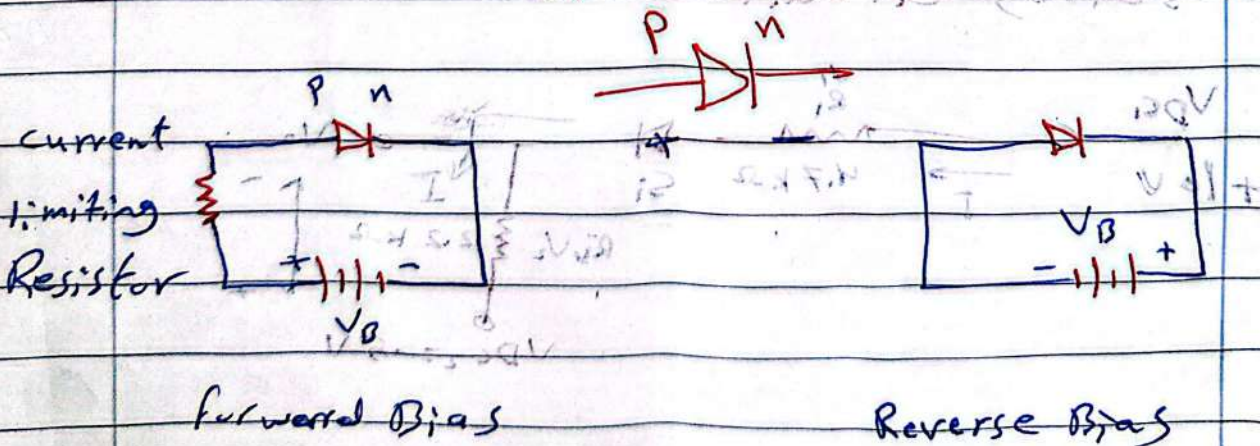 P n
P n
current
limiting
Resistor
+ -
V_B
Forward Bias
V_B
- +
Reverse Bias